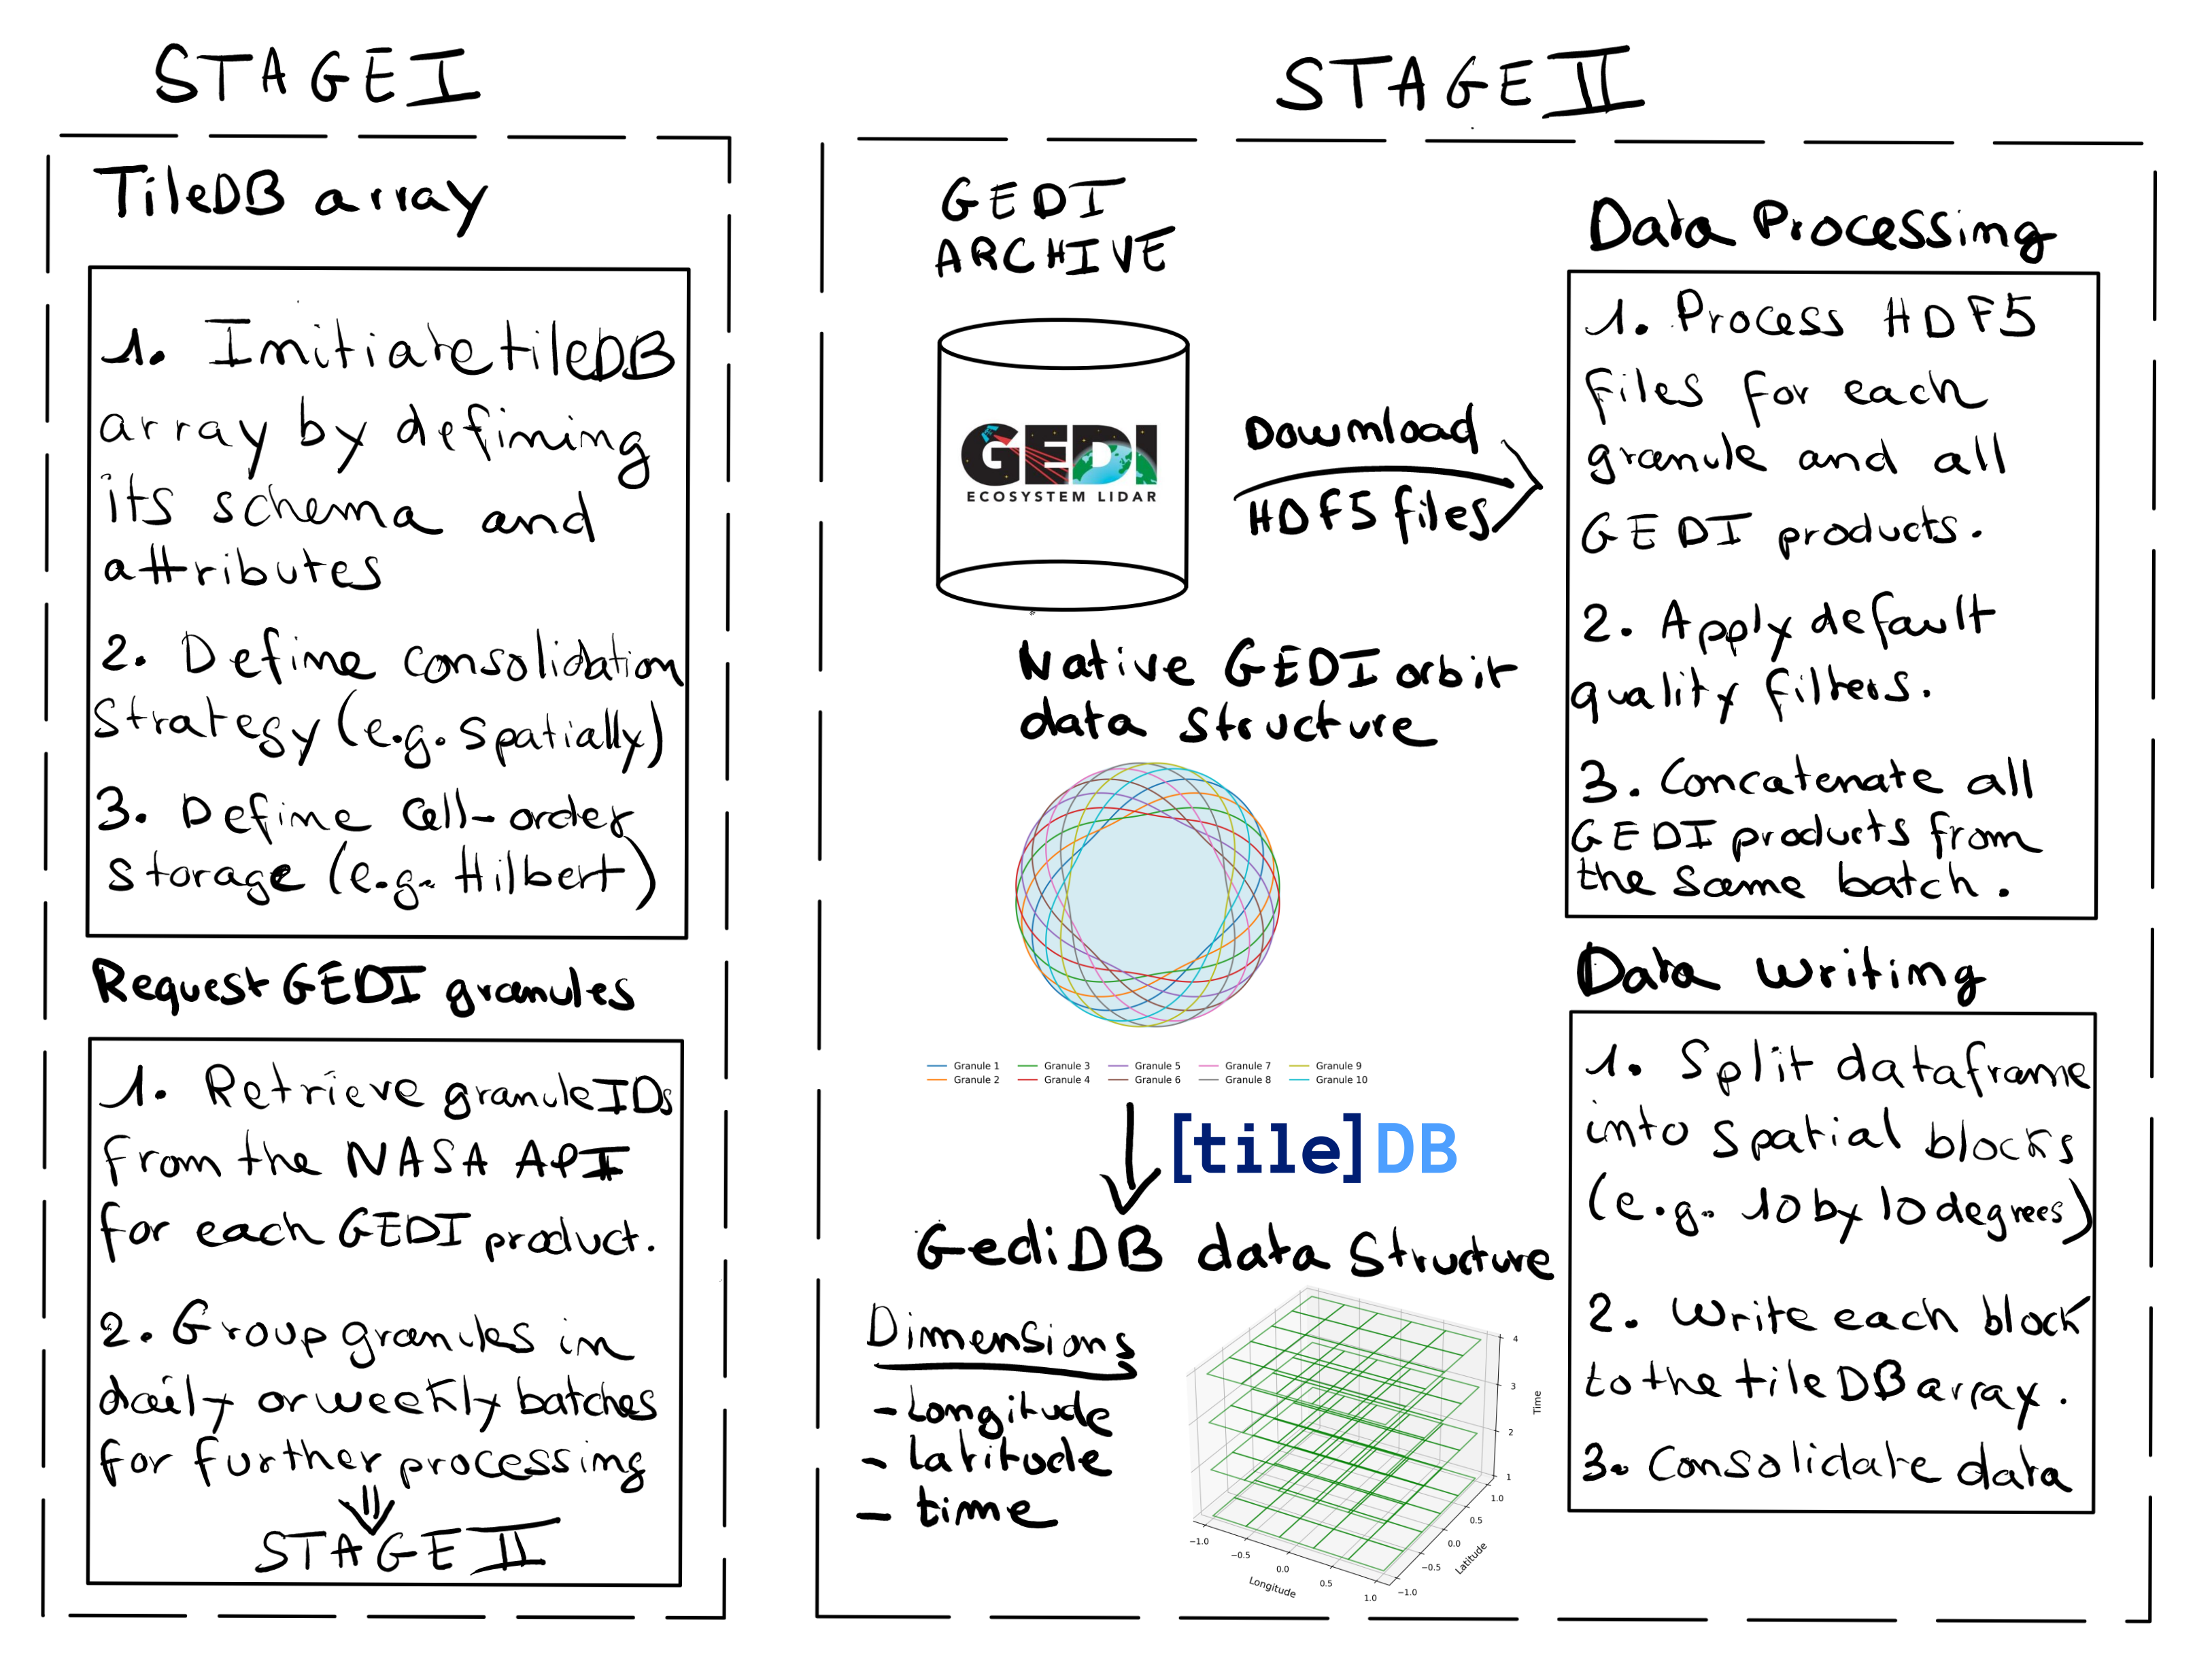 STAGE I
TileDB array
1. Initiate tileDB
array by defining
its schema and
attributes
2. Define consolidation
Strategy (e.g. spatially)
3. Define Cell-order
storage (e.g. Hilbert)
Request GEDI granules
1. Retrieve granule IDs
from the NASA API
for each GEDI product.
2. Group granules in
daily or weekly batches
for further processing
STAGE II
STAGE II
GEDI
ARCHIVE
GEDI
ECOSYSTEM LIDAR
Download
HDF5 files
Native GEDI orbit
data structure
Granule 1 Granule 3 Granule 5 Granule 7 Granule 9
Granule 2 Granule 4 Granule 6 Granule 8 Granule 10
[tile]DB
GediDB data Structure
Dimensions
- Longitude
- Latitude
- time
4
3
2
1
Time
1.0
0.5
0.0
−0.5
−1.0
Latitude
−1.0
−0.5
0.0
0.5
1.0
Longitude
Data Processing
1. Process HDF5
files for each
granule and all
GEDI products.
2. Apply default
quality filters.
3. Concatenate all
GEDI products from
the same batch.
Data writing
1. Split dataframe
into spatial blocks
(e.g. 10 by 10 degrees)
2. Write each block
to the tileDB array.
3. Consolidate data